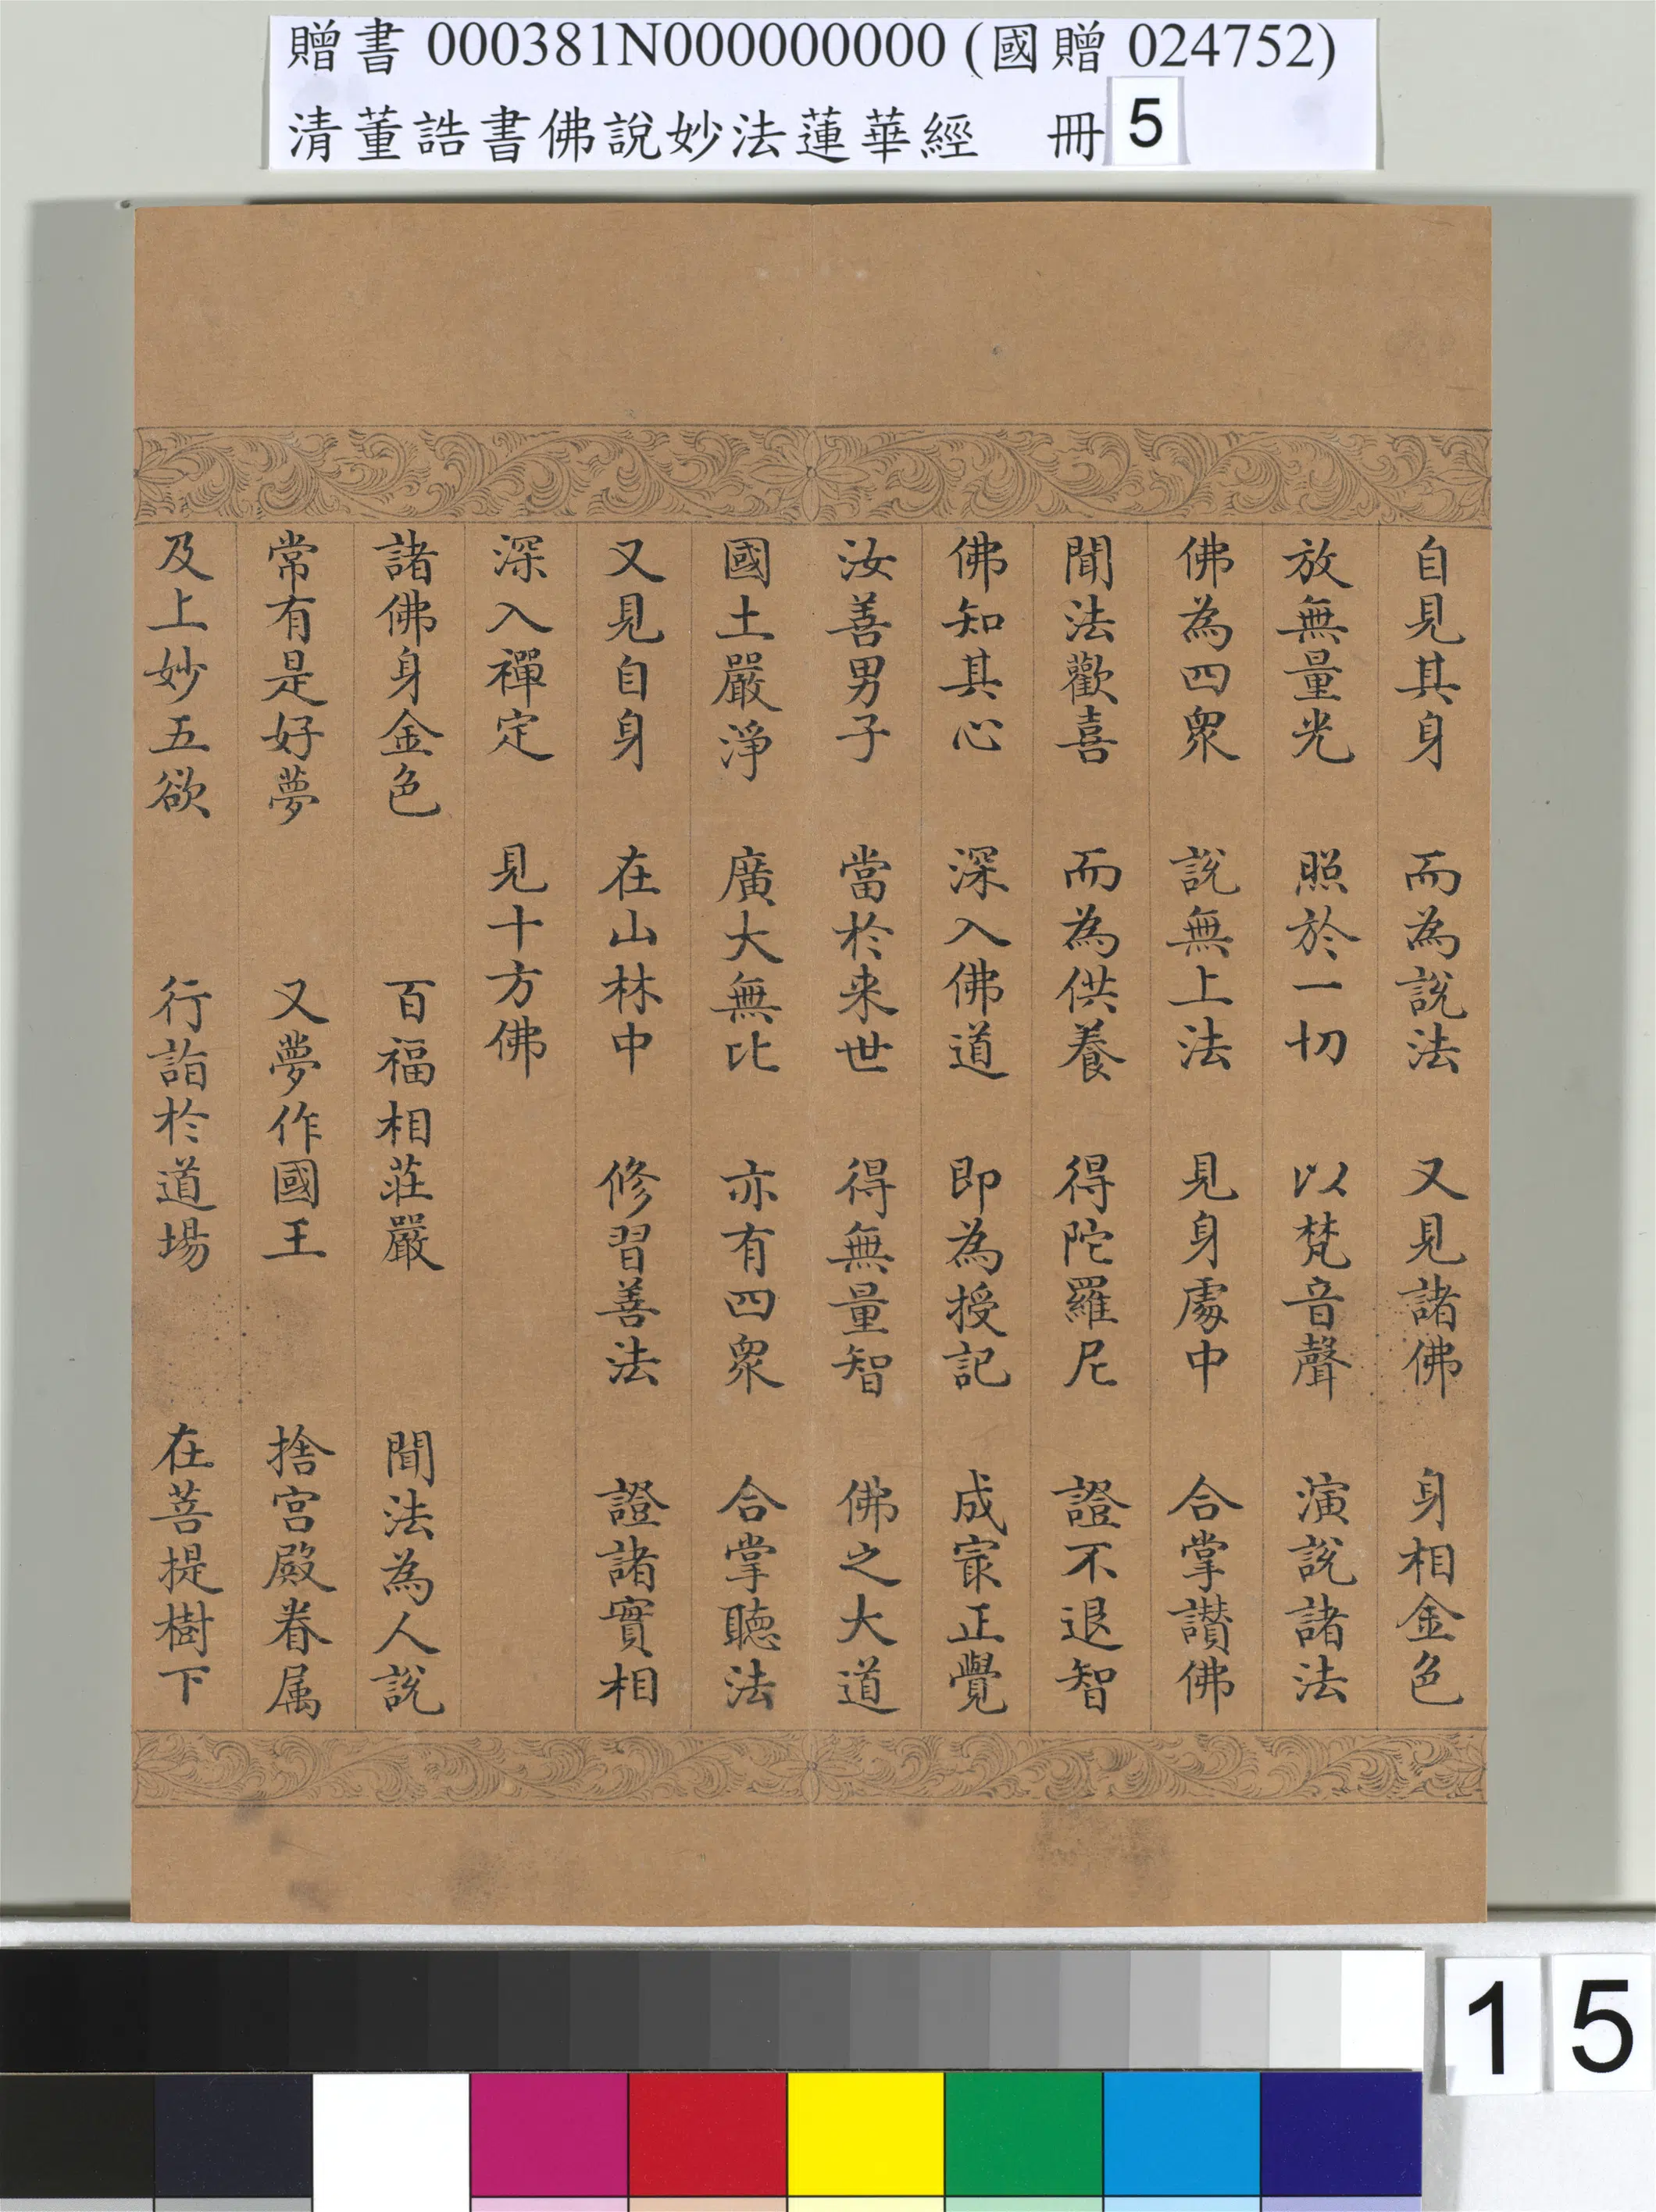 贈書 000381N000000000 (國贈 024752)
清董誥書佛說妙法蓮華經 冊 5
自見其身 而為說法 又見諸佛 身相金色
放無量光 照於一切 以梵音聲 演說諸法
佛為四眾 說無上法 見身處中 合掌讃佛
聞法歡喜 而為供養 得陀羅尼 證不退智
佛知其心 深入佛道 即為授記 成㝡正覺
汝善男子 當於来世 得無量智 佛之大道
國土嚴淨 廣大無比 亦有四眾 合掌聽法
又見自身 在山林中 修習善法 證諸實相
深入禪定 見十方佛
諸佛身金色 百福相莊嚴 聞法為人說
常有是好夢 又夢作國王 捨宮殿眷属
及上妙五欲 行詣於道場 在菩提樹下
15